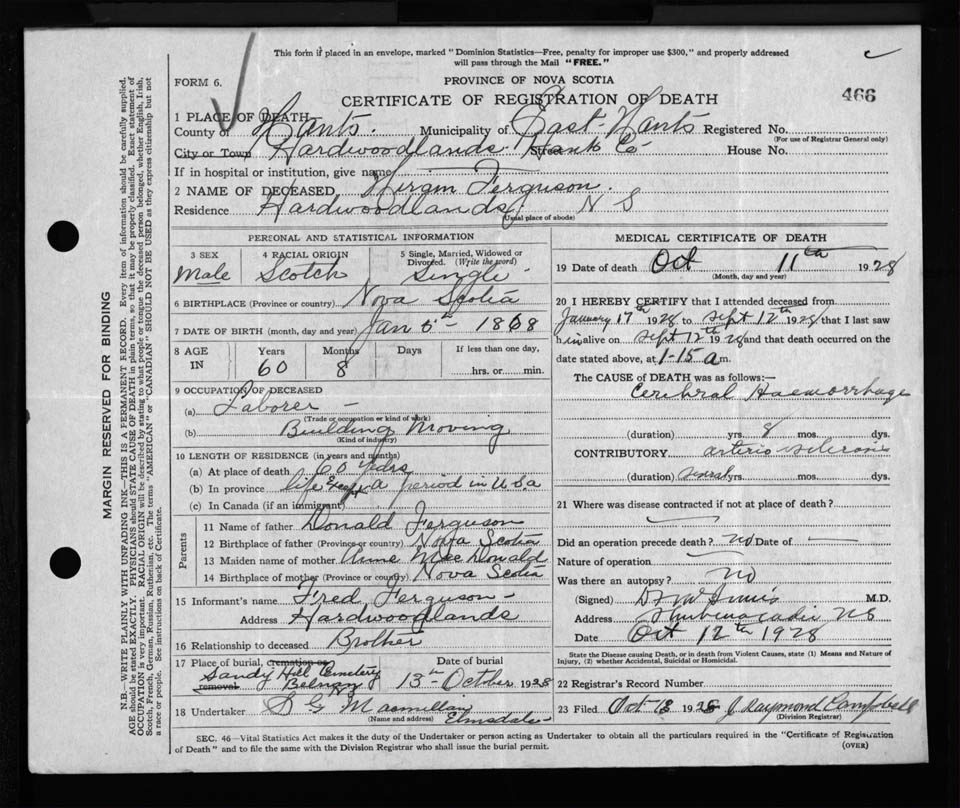 This form if placed in an envelope, marked "Dominion Statistics—Free, penalty for improper use $300," and properly addressed
will pass through the Mail "FREE."
FORM 6.
PROVINCE OF NOVA SCOTIA
CERTIFICATE OF REGISTRATION OF DEATH
466
1 PLACE OF DEATH
County of Hants. Municipality of East Hants Registered No.
(For use of Registrar General only)
City or Town Hardwoodlands Street Hants Co House No.
If in hospital or institution, give name
2 NAME OF DECEASED Hiram Ferguson.
Residence Hardwoodlands N S
(Usual place of abode)
PERSONAL AND STATISTICAL INFORMATION
3 SEX 4 RACIAL ORIGIN 5 Single, Married, Widowed or
Divorced. (Write the word)
Male Scotch Single
6 BIRTHPLACE (Province or country) Nova Scotia
7 DATE OF BIRTH (month, day and year) Jan 5th 1868
8 AGE IN Years Months Days If less than one day,
60 8 hrs. or min.
9 OCCUPATION OF DECEASED
(a) Laborer
(Trade or occupation or kind of work)
(b) Building Moving
(Kind of industry)
10 LENGTH OF RESIDENCE (in years and months)
(a) At place of death 60 years
(b) In province life except a period in U.S.a
(c) In Canada (if an immigrant)
Parents
11 Name of father Donald Ferguson
12 Birthplace of father (Province or country) Nova Scotia
13 Maiden name of mother Anne Mac Donald
14 Birthplace of mother (Province or country) Nova Scotia
15 Informant's name Fred Ferguson
Address Hardwoodlands
16 Relationship to deceased Brother
17 Place of burial, cremation or removal Date of burial
Sandy Hill Cemetery
Belnan NS 13th October 1928
18 Undertaker S G Macmillan
(Name and address) Elmsdale
MEDICAL CERTIFICATE OF DEATH
19 Date of death Oct 11th 1928
(Month, day and year)
20 I HEREBY CERTIFY that I attended deceased from
January 17th 1928 to Sept 12th 1928 that I last saw
h im alive on Sept 12th 1928 and that death occurred on the
date stated above, at 1-15 a m.
The CAUSE of DEATH was as follows:—
Cerebral Haemorrhage
(duration) yrs. 8 mos. dys.
CONTRIBUTORY arterio sclerosis
(duration) yrs. mos. dys.
21 Where was disease contracted if not at place of death?
Did an operation precede death? no Date of
Nature of operation
Was there an autopsy? no
(Signed) M.D.
Address Shubenacadie NS
Date Oct 12th 1928
State the Disease causing Death, or in death from Violent Causes, state (1) Means and Nature of
Injury, (2) whether Accidental, Suicidal or Homicidal.
22 Registrar's Record Number
23 Filed Oct 13 1928 J Raymond Campbell
(Division Registrar)
SEC. 46—Vital Statistics Act makes it the duty of the Undertaker or person acting as Undertaker to obtain all the particulars required in the "Certificate of Registration
of Death" and to file the same with the Division Registrar who shall issue the burial permit.
(OVER)
MARGIN RESERVED FOR BINDING
N.B.—WRITE PLAINLY WITH UNFADING INK—THIS IS A PERMANENT RECORD. Every item of information should be carefully supplied.
AGE should be stated EXACTLY. PHYSICIANS should STATE CAUSE OF DEATH in plain terms, so that it may be properly classified. Exact statement of
OCCUPATION is very important. RACIAL ORIGIN will be described by stating to what people or tongue the deceased person belonged, whether English, Irish,
Scotch, French, German, Russian, Ruthenian, etc. The terms "AMERICAN" or "CANADIAN" SHOULD NOT BE USED as they express citizenship but not
a race or people. See instructions on back of Certificate.